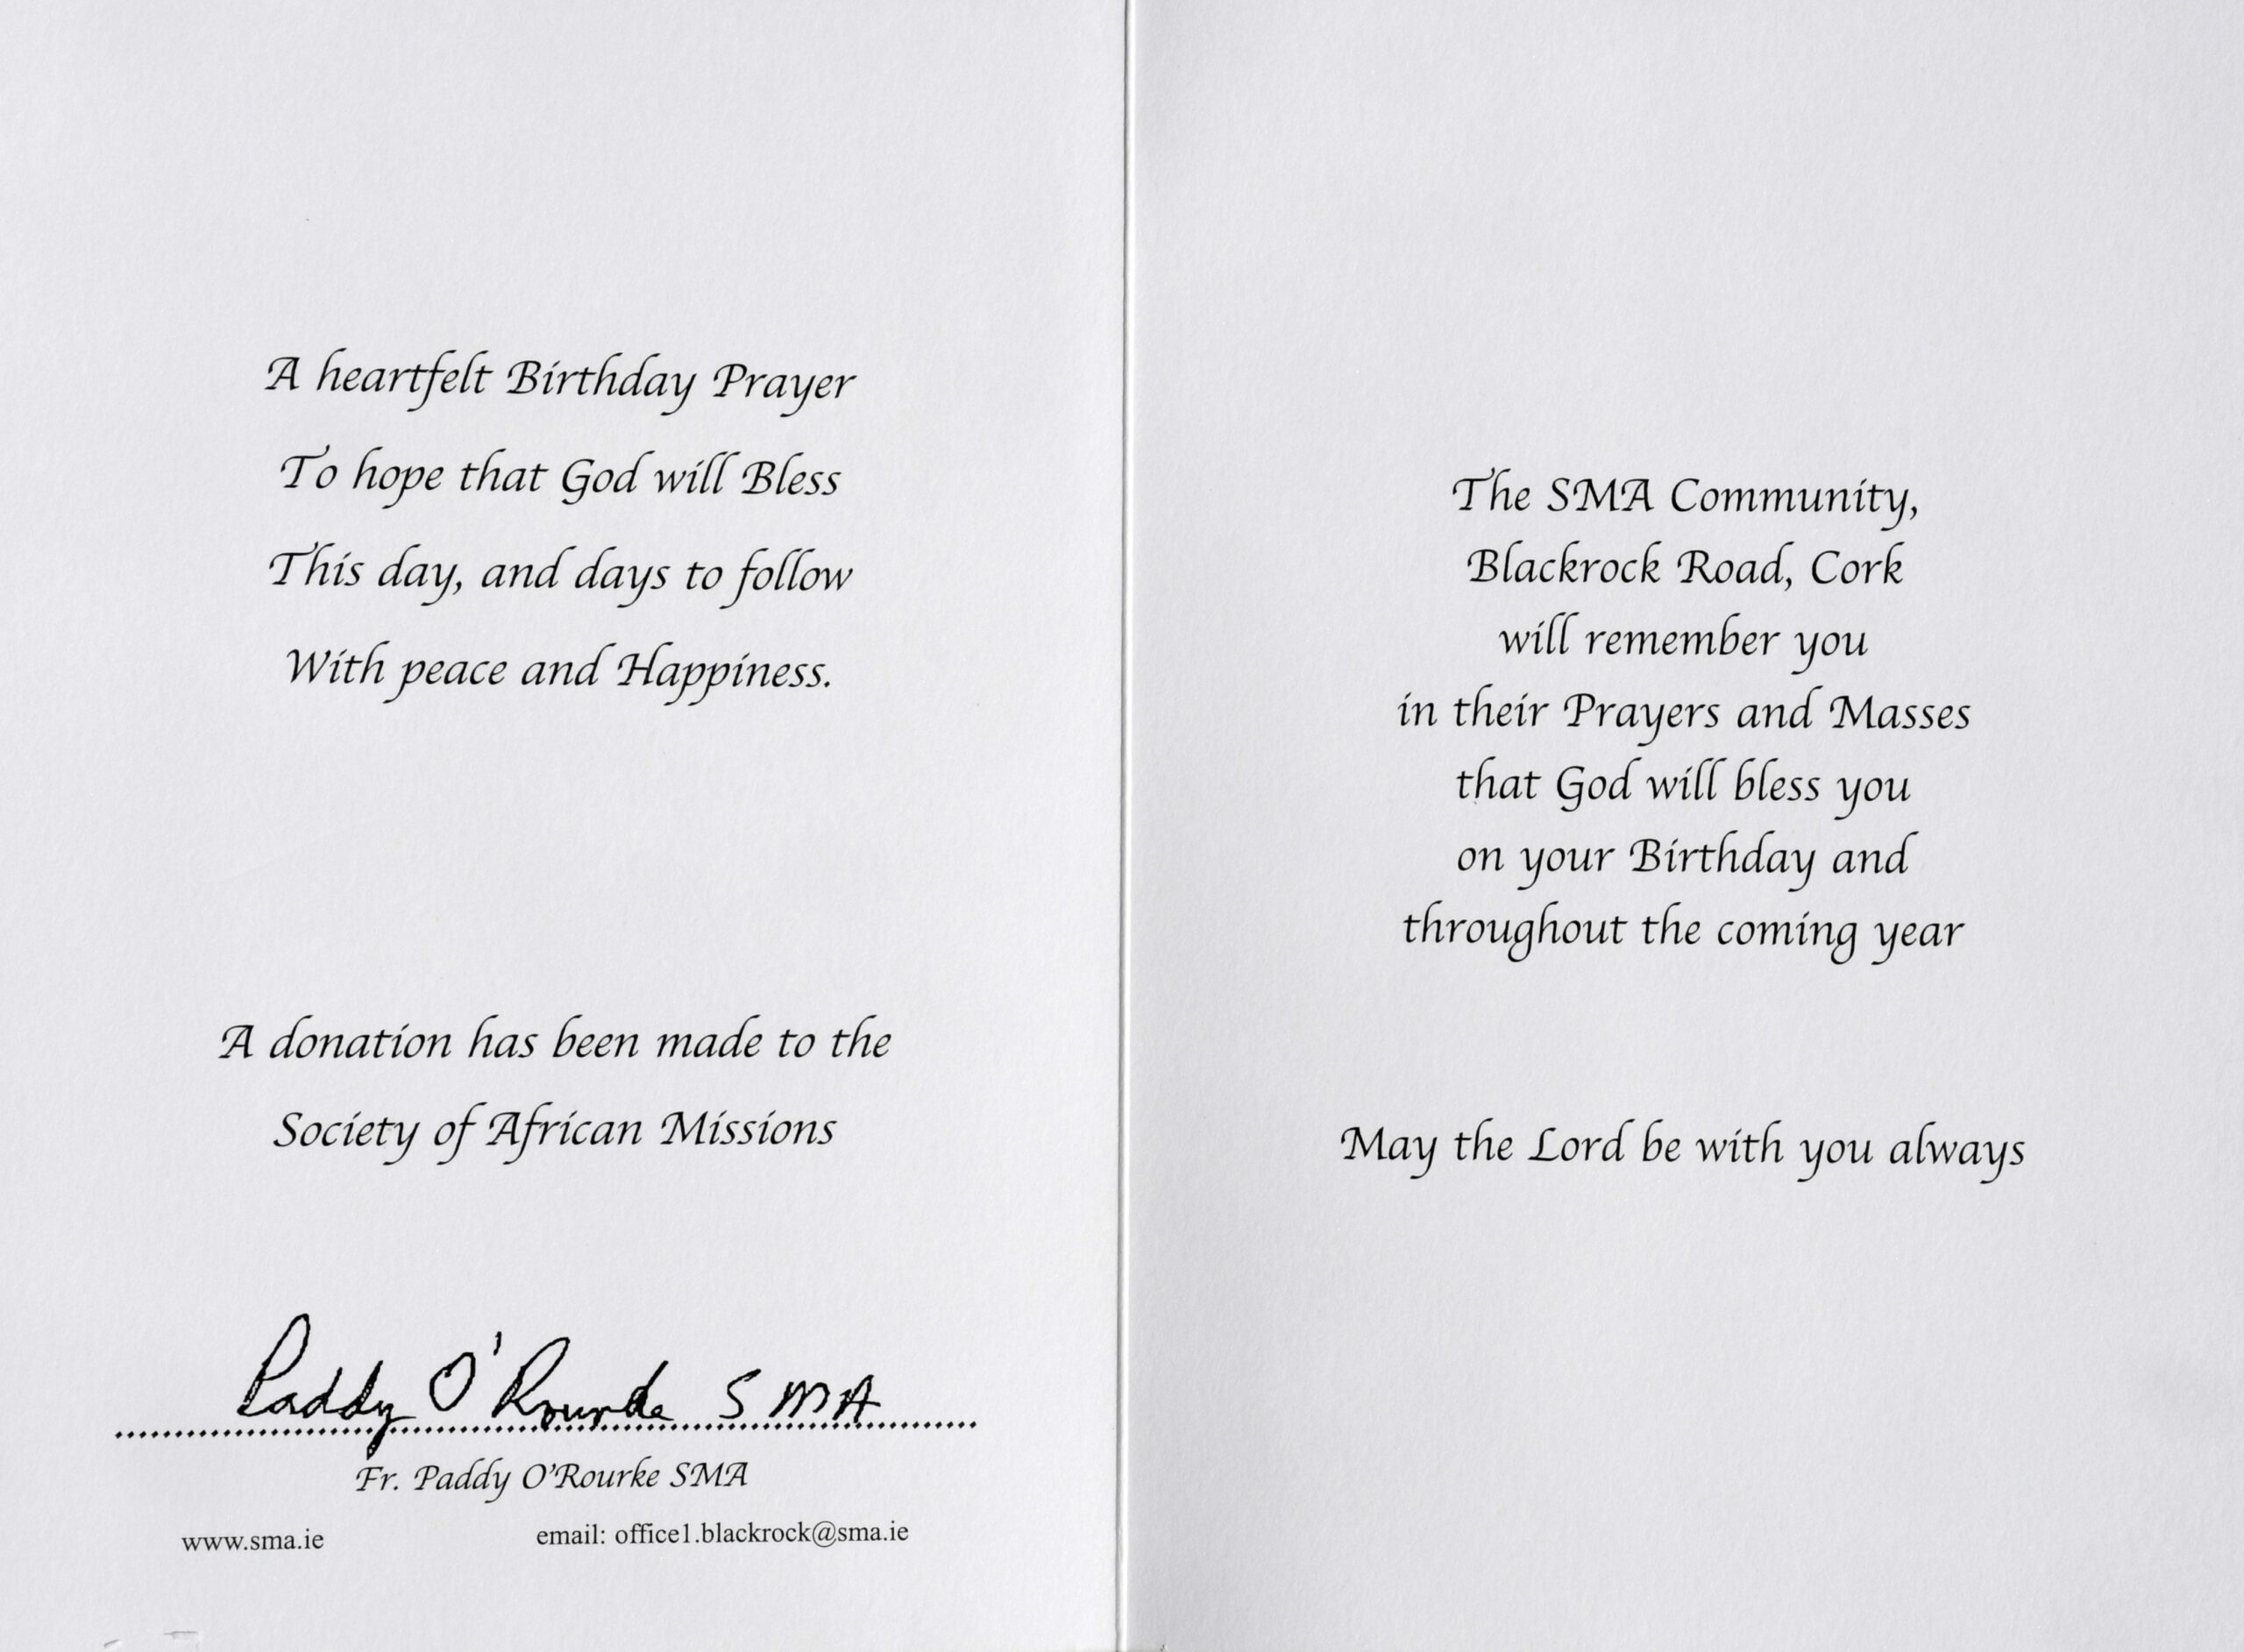 A heartfelt Birthday Prayer
To hope that God will Bless
This day, and days to follow
With peace and Happiness.
A donation has been made to the
Society of African Missions
Paddy O'Rourke SMA
Fr. Paddy O'Rourke SMA
www.sma.ie email: office1.blackrock@sma.ie
The SMA Community,
Blackrock Road, Cork
will remember you
in their Prayers and Masses
that God will bless you
on your Birthday and
throughout the coming year
May the Lord be with you always